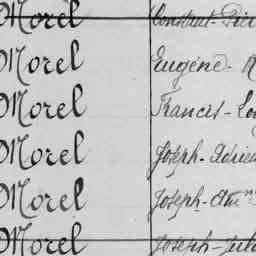 Morel Constant-Pier
Morel Eugène-
Morel Francis-Lou
Morel Joseph-Adrien
Morel Joseph-
Morel Joseph-Jule